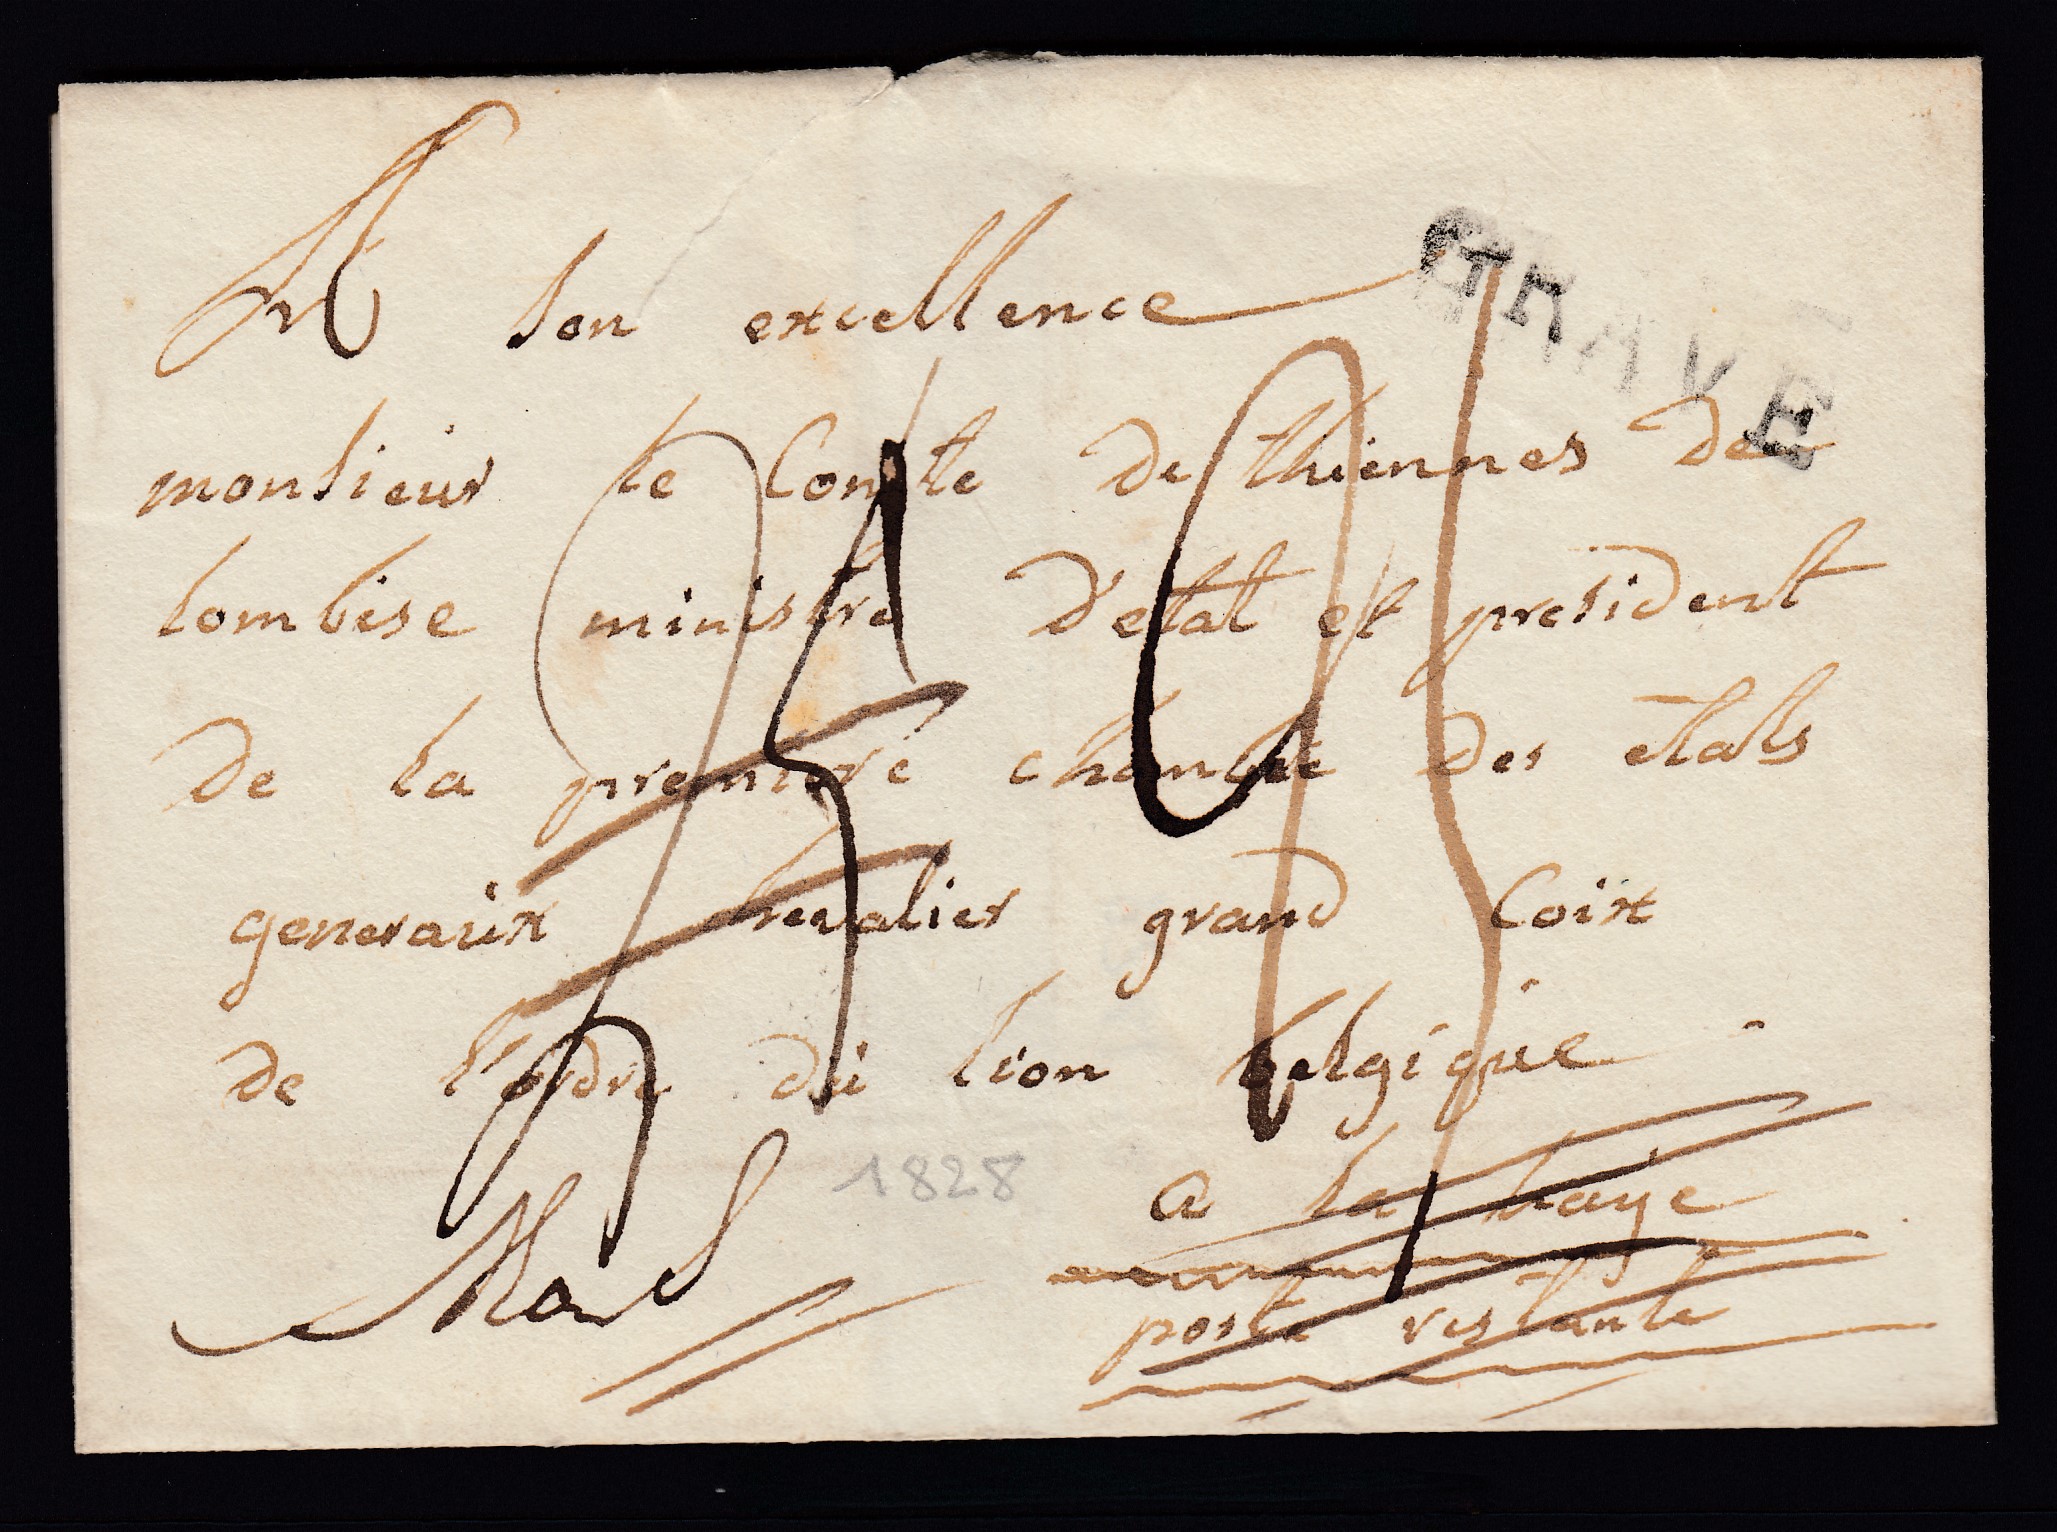 A son excellence
GRAVE
monsieur le Comte de thiennes de
lombise ministre d'etat et president
de la premiere chambre des etats
generaux chevalier grand Coix
de l'ordre du lion belgique
1828
a la haye
poste restante